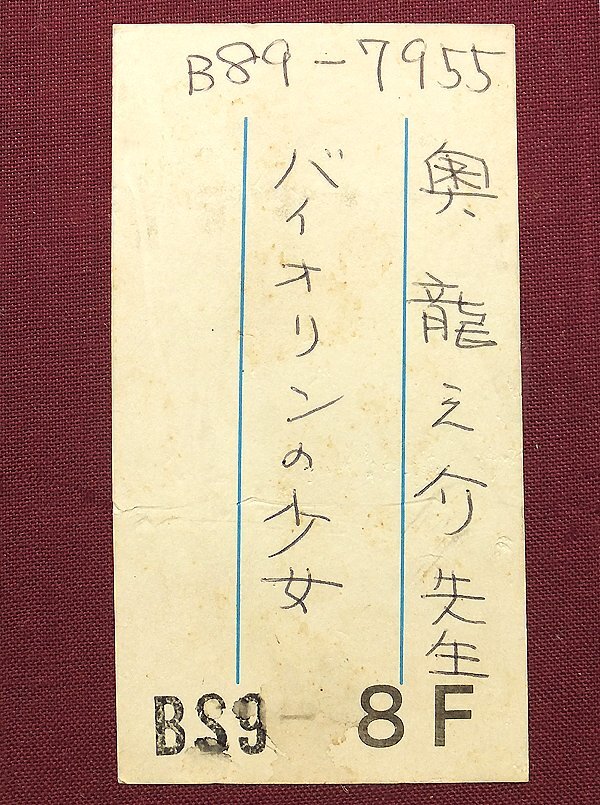 B89-7955
奥龍之介先生
バイオリンの少女
BS9- 8F